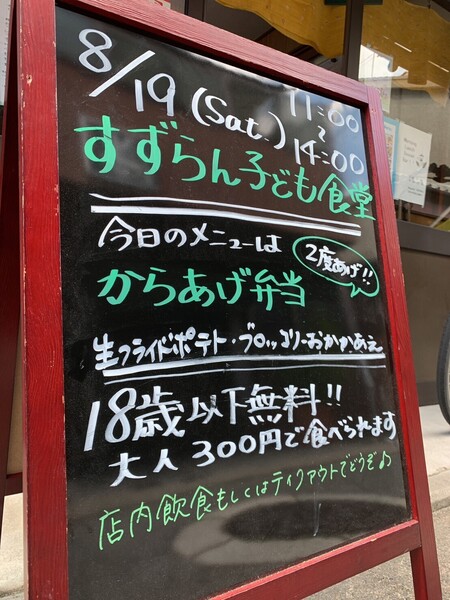 8/19 (Sat.) 11:00~14:00
すずらん子ども食堂
今日のメニューは
2度あげ!!
からあげ弁当
生フライドポテト・ブロッコリーおかかあえ
18歳以下無料!!
大人300円で食べられます
店内飲食もしくはテイクアウトでどうぞ♪